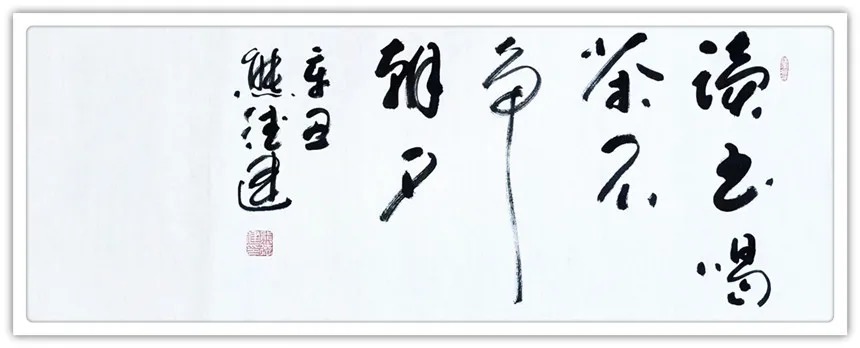 读书喝
茶不
争
朝夕
辛丑
熊德建